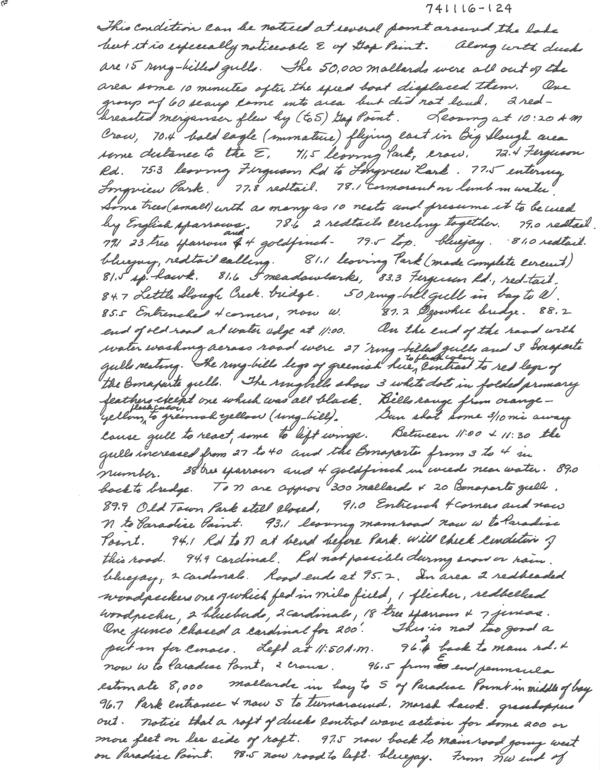 741116-124
This condition can be noticed at several point around the lake
but it is especially noticeable E of Gap Point. Along with ducks
are 15 ring-billed gulls. The 50,000 mallards were all out of the
area some 10 minutes after the speed boat displaced them. One
group of 60 scaup come into area but did not land. 2 red-
breasted merganser flew by (to S) Gap Point. Leaving at 10:20 AM
Crow, 70.4 bald eagle (immature) flying east in Big Slough area
some distance to the E. 71.5 leaving Park, crow. 72.4 Ferguson
Rd. 75.3 leaving Ferguson Rd to Longview Park. 77.5 entering
Longview Park. 77.8 redtail. 78.1 cormorant on limb in water.
Some trees (small) with as many as 10 nests and presume it to be used
by English sparrows. 78.6 2 redtails circling together. 79.0 redtail.
79.1 23 tree sparrow and 4 goldfinch. 79.5 top. bluejay. 81.0 redtail.
bluejay, redtail calling. 81.1 leaving Park (made complete circuit)
81.5 sp. hawk. 81.6 meadowlarks, 83.3 Ferguson Rd., red-tail.
84.7 Little Slough Creek bridge. 50 ring-bill gull in bay to W.
85.5 Entrenched 4 corners, now W. 87.2 bridge. 88.2
end of old road at water edge at 11:00. On the end of the road with
water washing across road were 27 ring-billed gulls and 3 Bonaparte
gulls resting. The ring-bills legs of greenish hue, to flesh color contrast to red legs of
the Bonaparte gulls. The ringbills show 3 white dots in folded primary
feathers except one which was all black. Bills range from orange-
yellow, flesh color, to greenish yellow (ring-bill). Gun shot some 3/10 mi away
cause gull to react, some to lift wings. Between 11:00 & 11:30 the
gulls increased from 27 to 40 and the Bonaparte from 3 to 4 in
number. 38 tree sparrows and 4 goldfinch in weeds near water. 89.0
back to bridge. To N are approx 300 mallards & 20 Bonaparte gulls.
89.9 Old Town Park still closed, 91.0 Entrench 4 corners and now
N to Paradise Point. 93.1 leaving main road now W to Paradise
Point. 94.1 Rd to N at bend before Park. Will check condition of
this road. 94.9 cardinal. Rd not possible during snow or rain.
bluejay, 2 cardinals. Road ends at 95.2. In area 2 redheaded
woodpeckers one of which fed in milo field, 1 flicker, redbellied
woodpecker, 2 bluebirds, 2 cardinals, 18 tree sparrows & 7 juncos.
One junco chased a cardinal for 200'. This is not too good a
put in for canoes. Left at 11:50 A.M. 96.2 back to main rd. &
now W to Paradise Point, 2 crows. 96.5 from E end peninsula
estimate 8,000 mallards in bay to S of Paradise Point in middle of bay
96.7 Park entrance & now S to turnaround. marsh hawk. grasshoppers
out. notice that a raft of ducks control wave action for some 200 or
more feet on lee side of raft. 97.5 now back to main road going west
on Paradise Point. 98.5 now road to left. bluejay. From NW end of